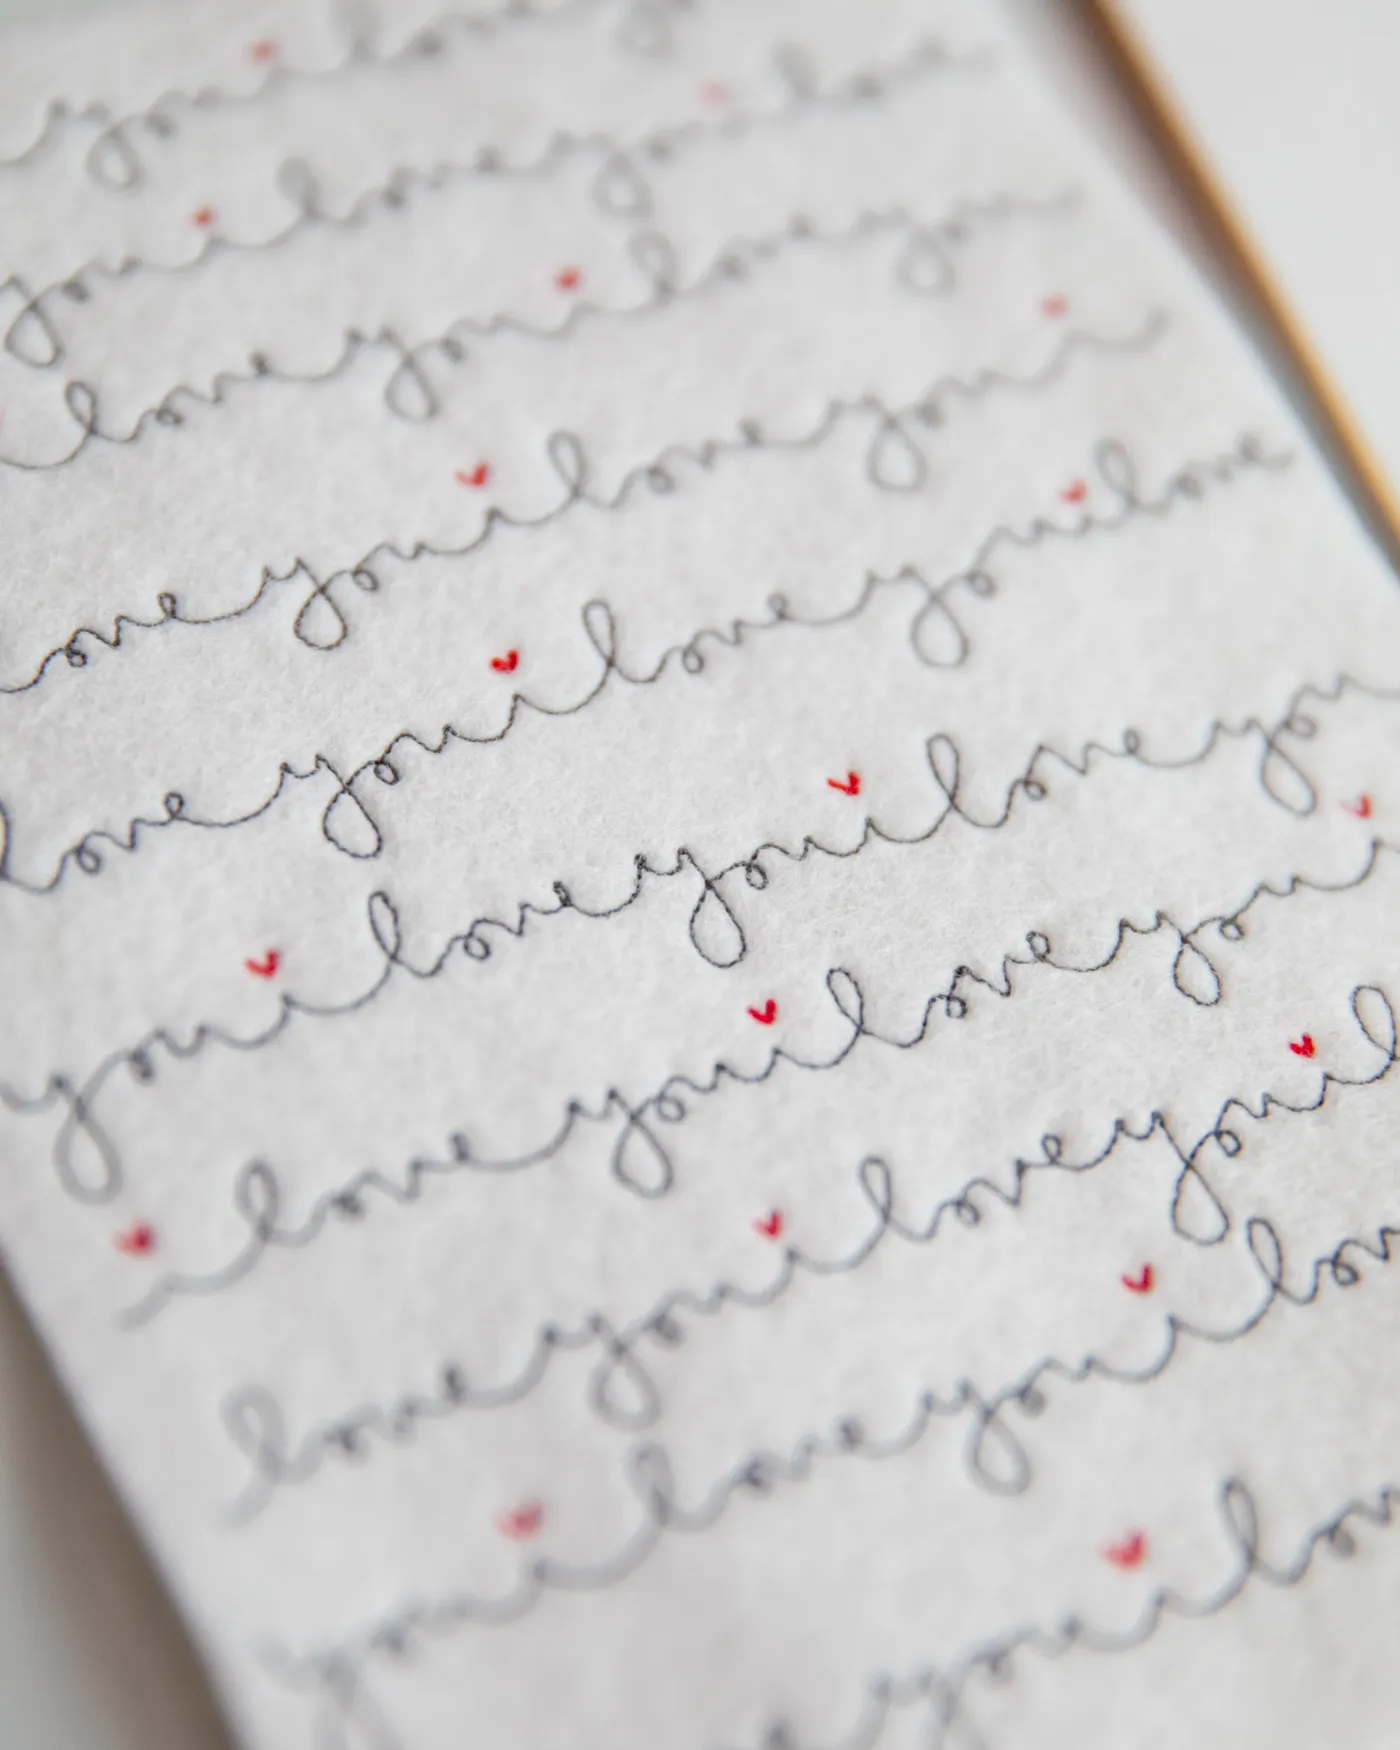 youilovey
youiloveyouilove
loveyouiloveyou
oveyouiloveyoui
loveyouiloveyouilove
youiloveyouiloveyou
iloveyouiloveyoui
loveyouiloveyouil
youiloveyouilov
youilov